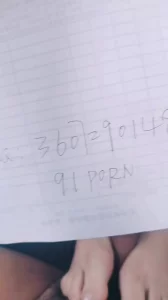 3607=90145
91 PORN